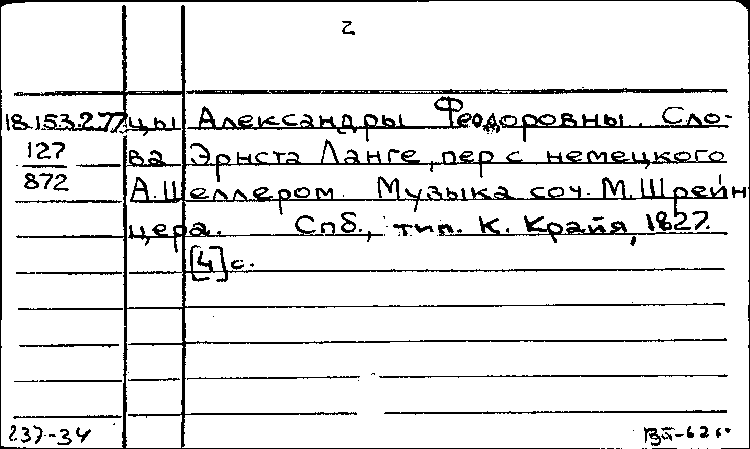 2
18.153.277 цы Александры Феодоровны. Сло-
127 ва Эрнста Ланге, пер с немецкого
872 А. Шеллером. Музыка соч. М. Шрейн
цера. Спб., тип. К. Крайя, 1827.
[4] с.
237-34